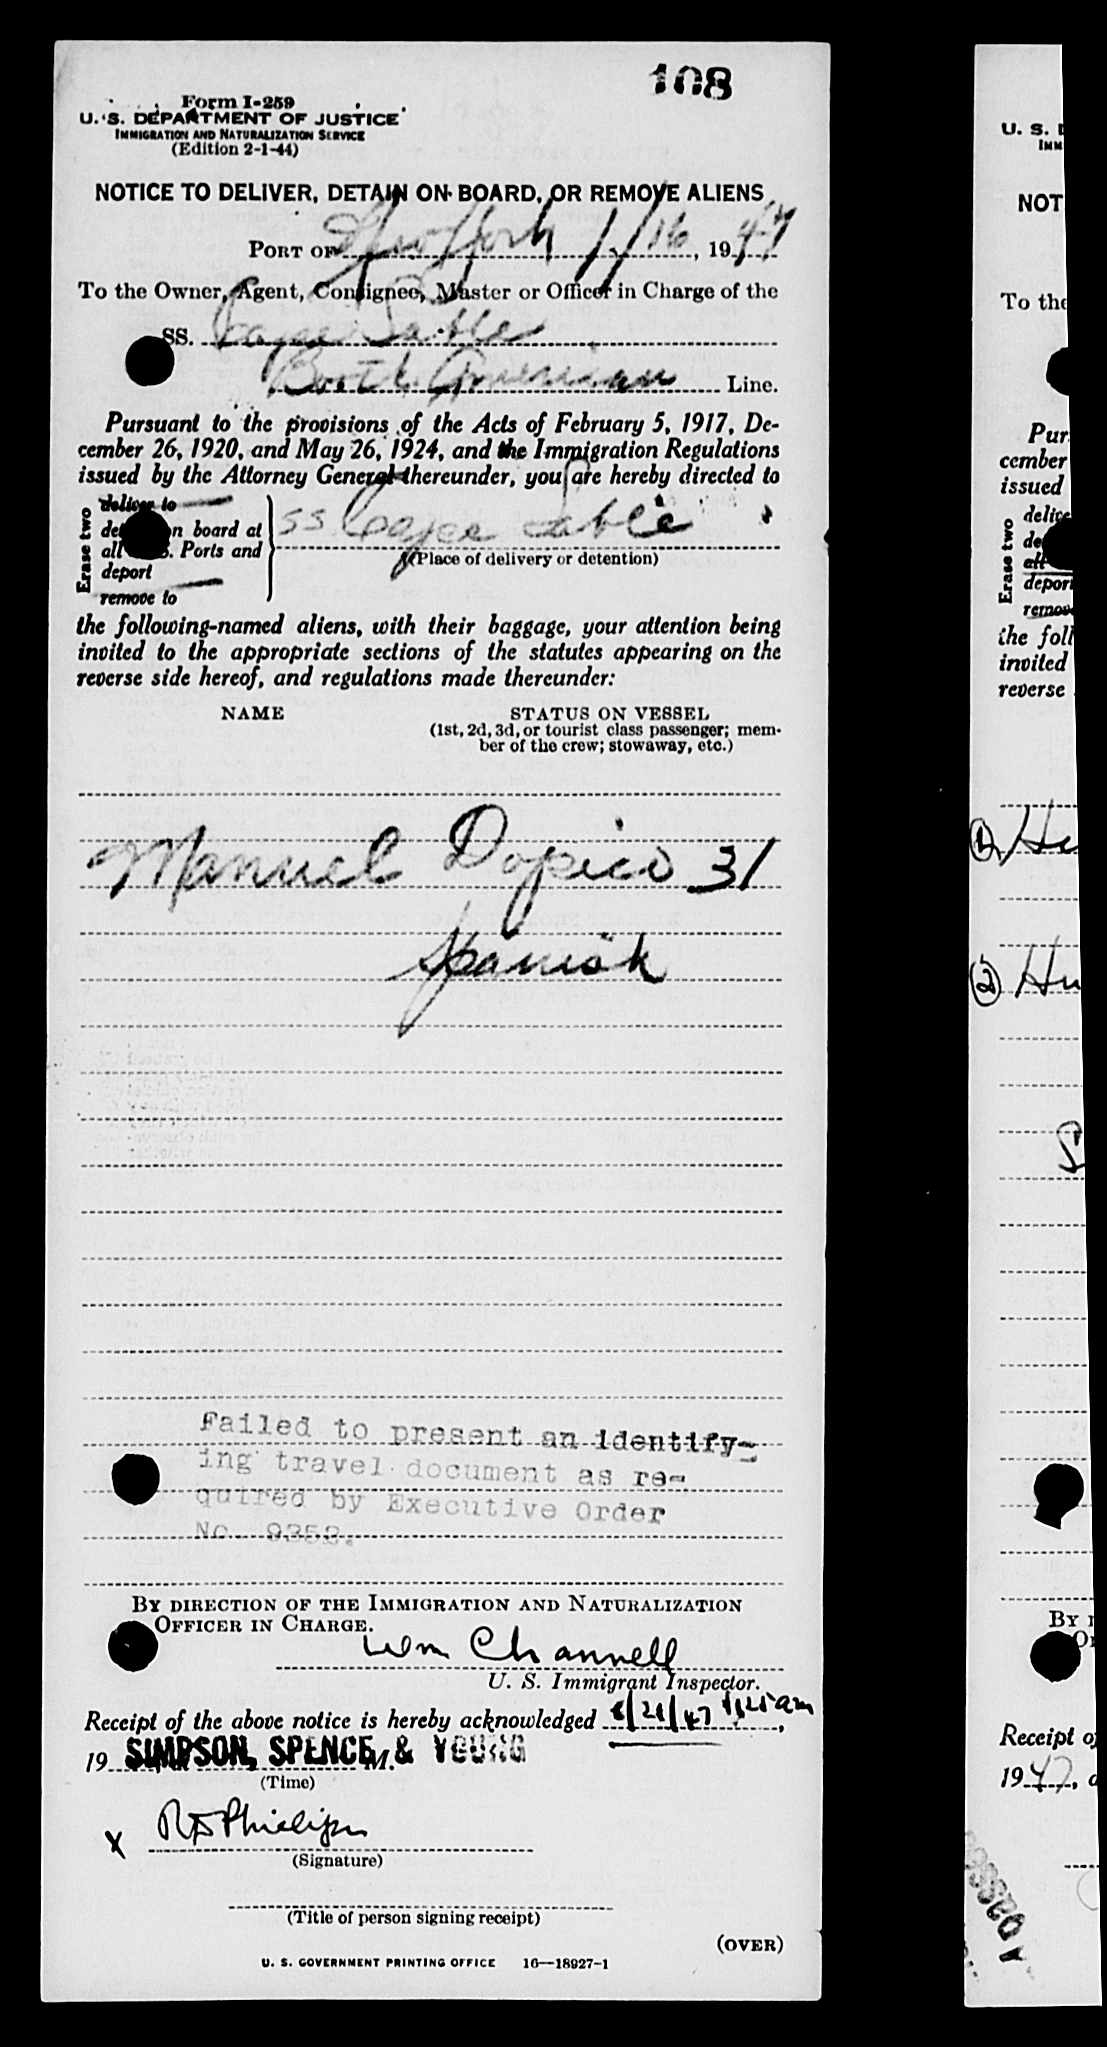 108
Form I-259
U. S. DEPARTMENT OF JUSTICE
IMMIGRATION AND NATURALIZATION SERVICE
(Edition 2-1-44)
NOTICE TO DELIVER, DETAIN ON BOARD, OR REMOVE ALIENS
PORT OF New York 1/16, 1947
To the Owner, Agent, Consignee, Master or Officer in Charge of the
SS. Cape Sable
Booth American Line.
Pursuant to the provisions of the Acts of February 5, 1917, De-
cember 26, 1920, and May 26, 1924, and the Immigration Regulations
issued by the Attorney General thereunder, you are hereby directed to
Erase two
deliver to
on board at
all S. Ports and
deport
remove to
SS Cape Sable
(Place of delivery or detention)
the following-named aliens, with their baggage, your attention being
invited to the appropriate sections of the statutes appearing on the
reverse side hereof, and regulations made thereunder:
NAME STATUS ON VESSEL
(1st, 2d, 3d, or tourist class passenger; mem-
ber of the crew; stowaway, etc.)
Manuel Dopico 31
Spanish
Failed to present an identify-
ing travel document as re-
quired by Executive Order
No. 9352.
BY DIRECTION OF THE IMMIGRATION AND NATURALIZATION
OFFICER IN CHARGE.
Wm Channell
U. S. Immigrant Inspector.
Receipt of the above notice is hereby acknowledged
19 M.
SIMPSON, SPENCE & YOUNG
(Time)
X
(Signature)
(Title of person signing receipt)
(OVER)
U. S. GOVERNMENT PRINTING OFFICE 16—18927-1
U. S.
IMM
NOT
To the
Pur
cember
issued
Erase two
deport
the foll
invited
reverse
1
2
BY
Receipt
1947,